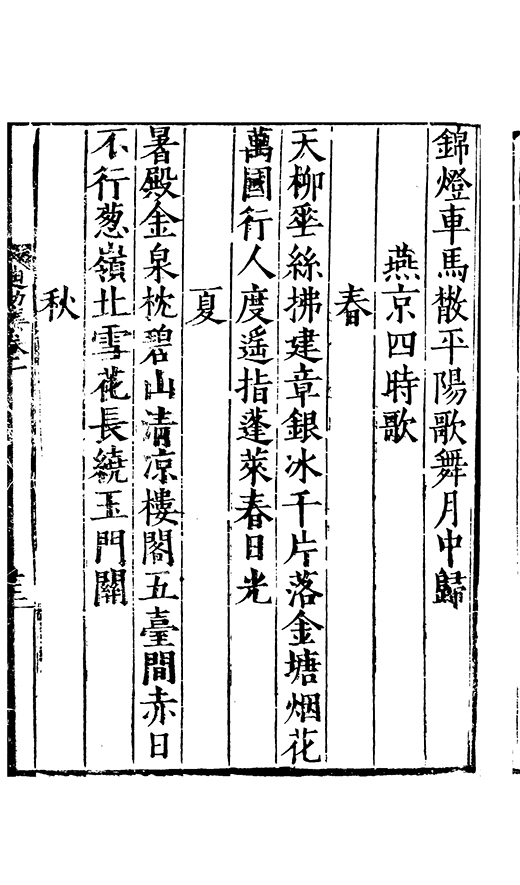 錦燈車馬散平陽歌舞月中歸
燕京四時歌
春
天柳垂絲拂建章銀冰千片落金塘烟花
萬國行人度遥指蓬萊春日光
夏
暑殿金泉枕碧山清凉樓閣五臺間赤日
不行葱嶺北雪花長繞玉門關
秋